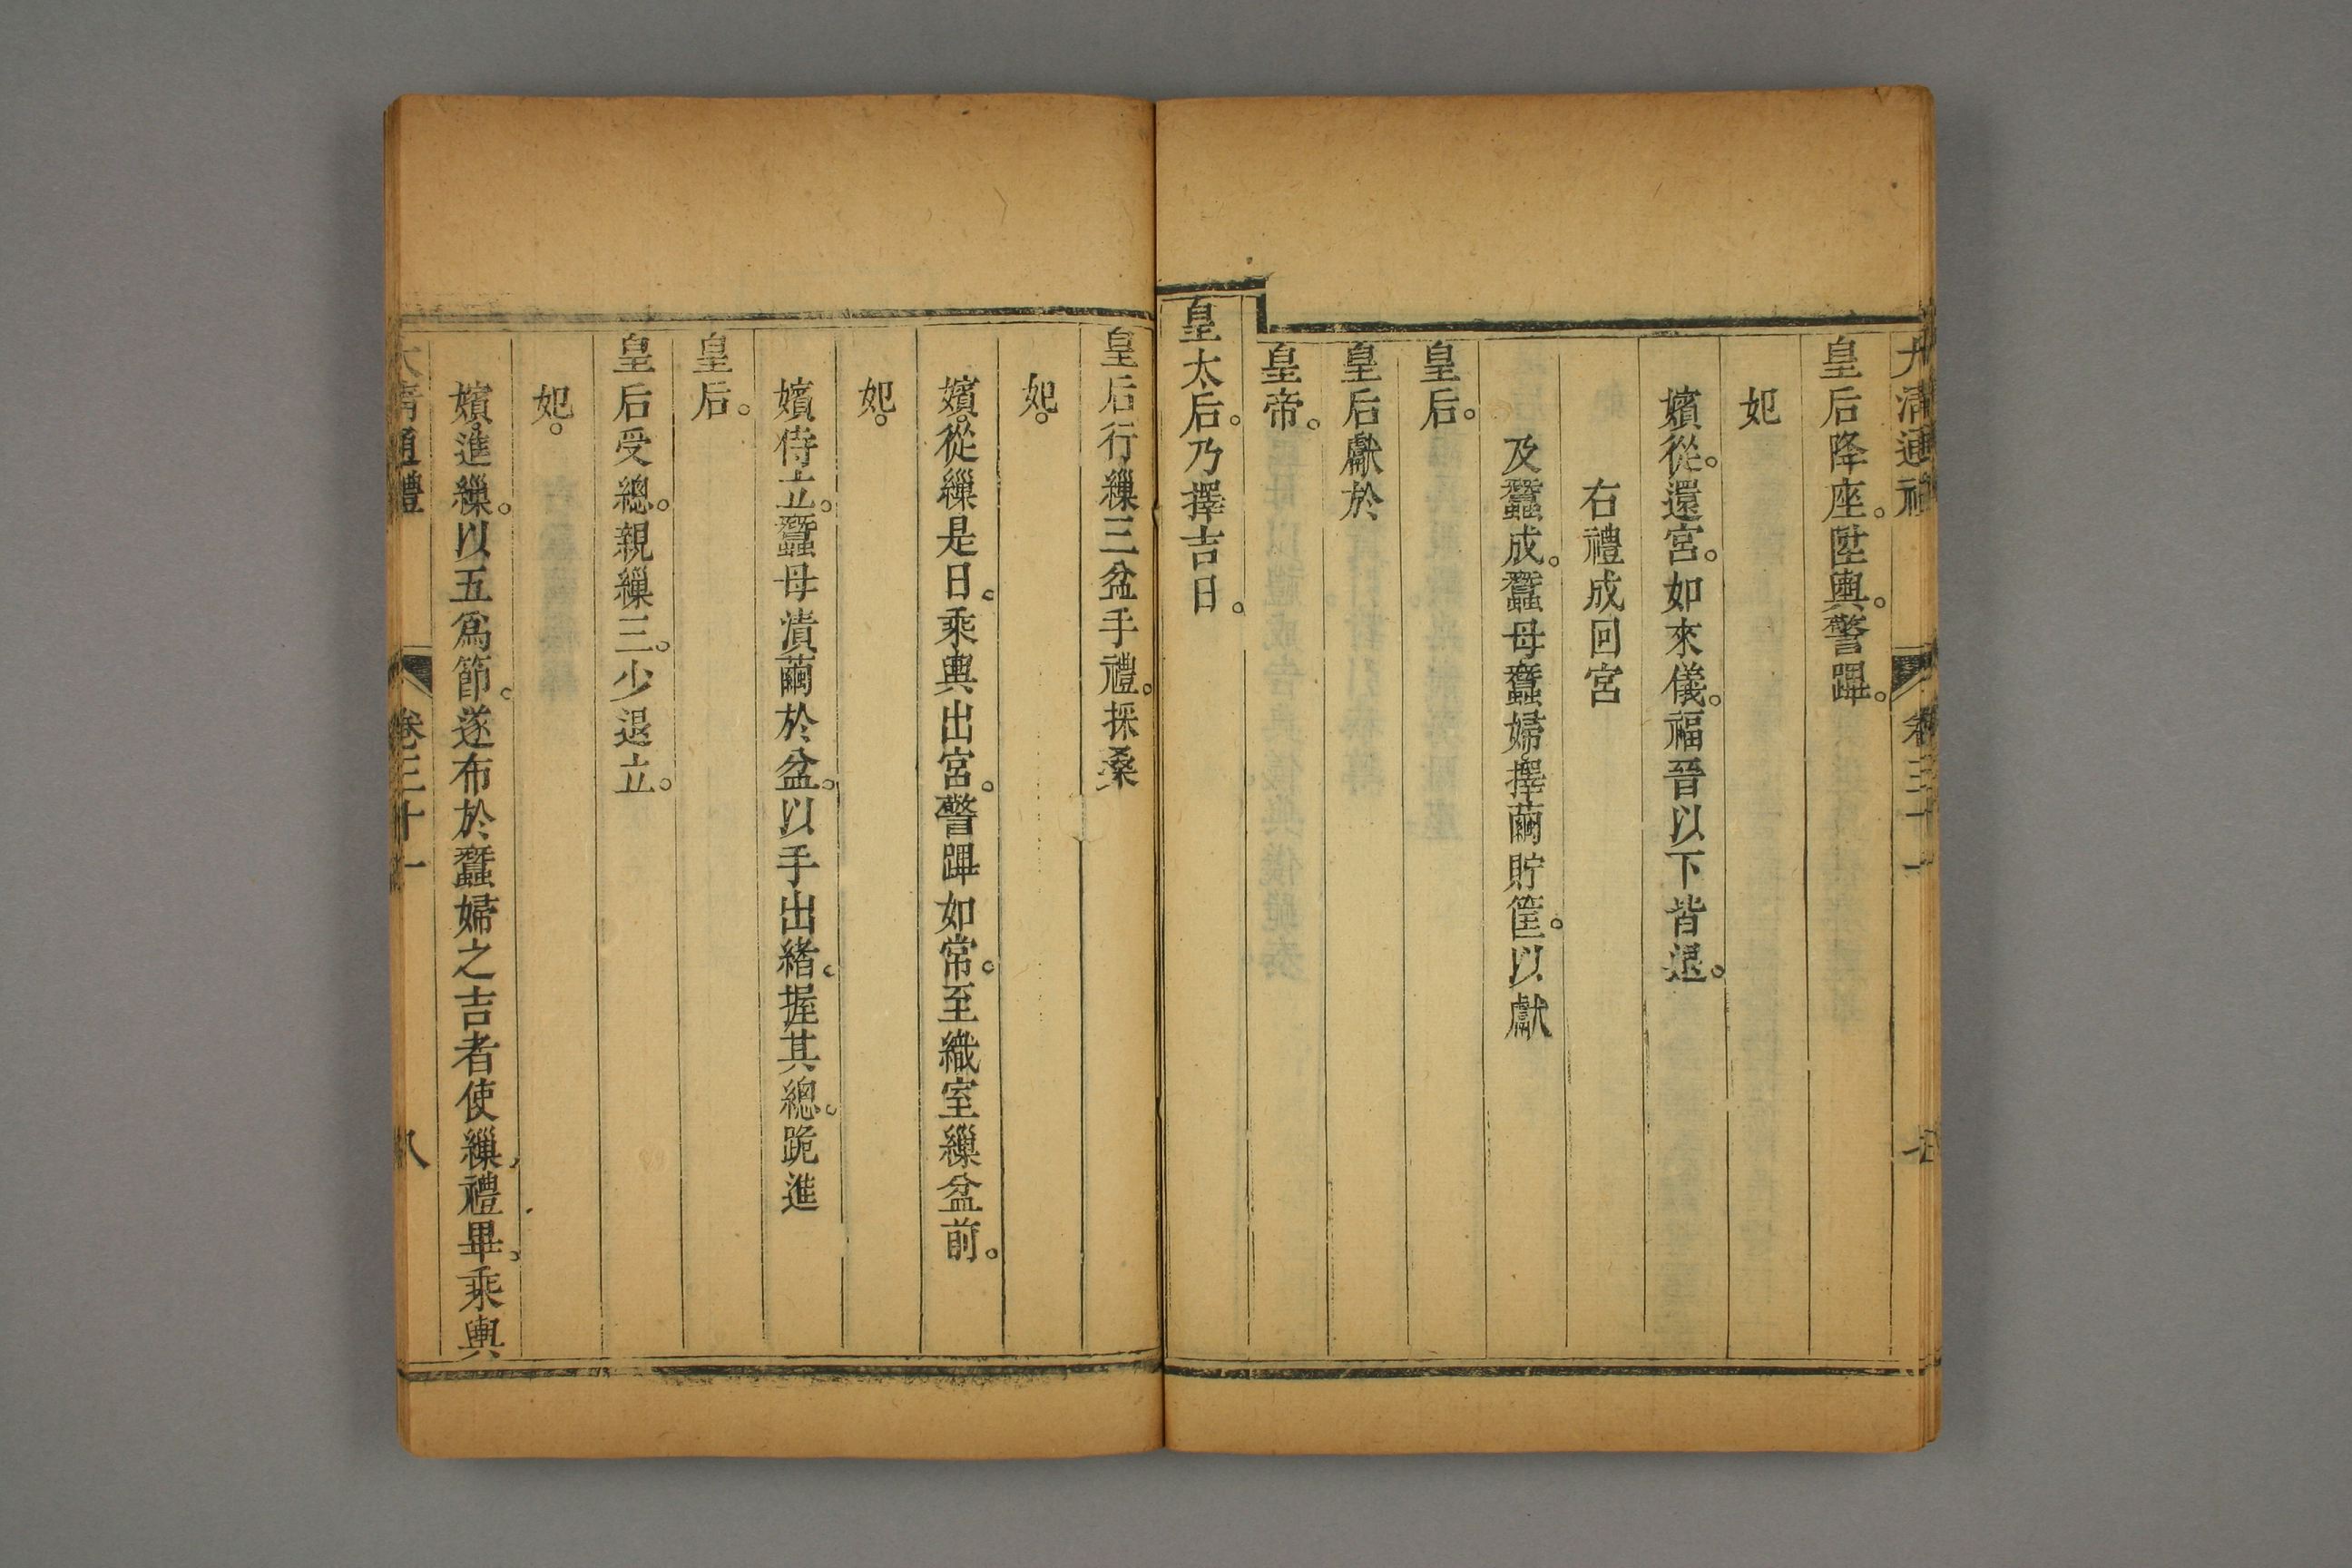 大清通禮 卷三十一 七
皇后降座。陞輿。警蹕。
妃
嬪從。還宮。如來儀。福晉以下皆退。
右禮成回宮
及蠶成。蠶母蠶婦擇繭貯筐。以獻
皇后。
皇后獻於
皇帝。
皇太后。乃擇吉日。
皇后行繅三盆手禮。採桑
妃。
嬪。從繅是日。乘輿出宮。警蹕如常。至織室繅盆前。
妃。
嬪侍立。蠶母漬繭於盆。以手出緒。握其總。跪進
皇后。
皇后受總。親繅三。少退立。
妃。
嬪進繅。以五爲節。遂布於蠶婦之吉者使繅。禮畢。乘輿
大清通禮 卷三十一 八